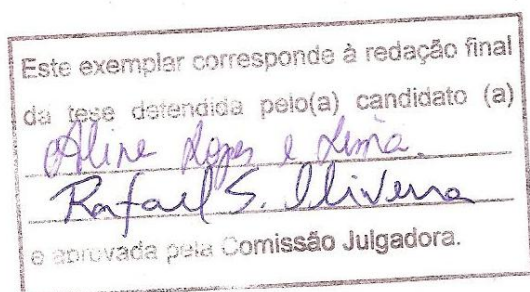 Este exemplar corresponde à redação final
da tese defendida pelo(a) candidato (a)
Aline Lopes e Lima.
Rafael S. Oliveira
e aprovada pela Comissão Julgadora.